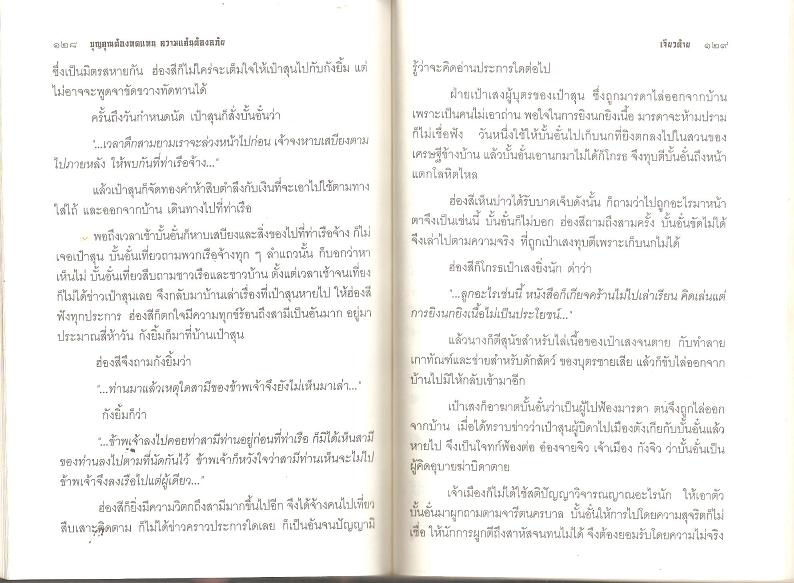 ๑๒๘ บุญคุณต้องทดแทน ความแค้นต้องอภัย
ซึ่งเป็นมิตรสหายกัน ฮ่องสีก็ไม่ใคร่จะเต็มใจให้เป๋าสุนไปกับกังยิ้ม แต่
ไม่อาจจะพูดจาขัดขวางทัดทานได้
ครั้นถึงวันกำหนดนัด เป๋าสุนก็สั่งบั้นอั๋นว่า
"...เวลาดึกสามยามเราจะล่วงหน้าไปก่อน เจ้าจงหาบเสบียงตาม
ไปภายหลัง ให้พบกันที่ท่าเรือจ้าง..."
แล้วเป๋าสุนก็จัดทองคำห้าสิบตำลึงกับเงินที่จะเอาไปใช้ตามทาง
ใส่ไถ้ และออกจากบ้าน เดินทางไปที่ท่าเรือ
พอถึงเวลาเช้าบั้นอั๋นก็หาบเสบียงและสิ่งของไปที่ท่าเรือจ้าง ก็ไม่
เจอเป๋าสุน บั้นอั๋นเที่ยวถามพวกเรือจ้างทุก ๆ ลำแถวนั้น ก็บอกว่าหา
เห็นไม่ บั้นอั๋นเที่ยวสืบถามชาวเรือและชาวบ้าน ตั้งแต่เวลาเช้าจนเที่ยง
ก็ไม่ได้ข่าวเป๋าสุนเลย จึงกลับมาบ้านเล่าเรื่องที่เป๋าสุนหายไป ให้ฮ่องสี
ฟังทุกประการ ฮ่องสีก็ตกใจมีความทุกข์ร้อนถึงสามีเป็นอันมาก อยู่มา
ประมาณสี่ห้าวัน กังยิ้มก็มาที่บ้านเป๋าสุน
ฮ่องสีจึงถามกังยิ้มว่า
"...ท่านมาแล้วเหตุใดสามีของข้าพเจ้าจึงยังไม่เห็นมาเล่า..."
กังยิ้มก็ว่า
"...ข้าพเจ้าลงไปคอยท่าสามีท่านอยู่ก่อนที่ท่าเรือ ก็มิได้เห็นสามี
ของท่านลงไปตามที่นัดกันไว้ ข้าพเจ้าก็หวังใจว่าสามีท่านเห็นจะไม่ไป
ข้าพเจ้าจึงลงเรือไปแต่ผู้เดียว..."
ฮ่องสีก็ยิ่งมีความวิตกถึงสามีมากขึ้นไปอีก จึงได้จ้างคนไปเที่ยว
สืบเสาะติดตาม ก็ไม่ได้ข่าวคราวประการใดเลย ก็เป็นอันจนปัญญามิ
เจียวต้าย ๑๒๙
รู้ว่าจะคิดอ่านประการใดต่อไป
ฝ่ายเป๋าเสงผู้บุตรของเป๋าสุน ซึ่งถูกมารดาไล่ออกจากบ้าน
เพราะเป็นคนไม่เอาถ่าน พอใจในการยิงนกยิงเนื้อ มารดาจะห้ามปราม
ก็ไม่เชื่อฟัง วันหนึ่งใช้ให้บั้นอั๋นไปเก็บนกที่ยิงตกลงไปในสวนของ
เศรษฐีข้างบ้าน แล้วบั้นอั๋นเอานกมาไม่ได้ก็โกรธ จึงทุบตีบั้นอั๋นถึงหน้า
แตกโลหิตไหล
ฮ่องสีเห็นบ่าวได้รับบาดเจ็บดังนั้น ก็ถามว่าไปถูกอะไรมาหน้า
ตาจึงเป็นเช่นนี้ บั้นอั๋นก็ไม่บอก ฮ่องสีถามถึงสามครั้ง บั้นอั๋นขัดไม่ได้
จึงเล่าไปตามความจริง ที่ถูกเป๋าเสงทุบตีเพราะเก็บนกไม่ได้
ฮ่องสีก็โกรธเป๋าเสงยิ่งนัก ด่าว่า
"...ลูกอะไรเช่นนี้ หนังสือก็เกียจคร้านไม่ไปเล่าเรียน คิดเล่นแต่
การยิงนกยิงเนื้อไม่เป็นประโยชน์..."
แล้วนางก็ตีสุนัขสำหรับไล่เนื้อของเป๋าเสงจนตาย กับทำลาย
เกาทัณฑ์และข่ายสำหรับดักสัตว์ ของบุตรชายเสีย แล้วก็ขับไล่ออกจาก
บ้านไปมิให้กลับเข้ามาอีก
เป๋าเสงก็อาฆาตบั้นอั๋นว่าเป็นผู้ไปฟ้องมารดา ตนจึงถูกไล่ออก
จากบ้าน เมื่อได้ทราบข่าวว่าเป๋าสุนผู้บิดาไปเมืองตังเกียกับบั้นอั๋นแล้ว
หายไป จึงเป็นโจทก์ฟ้องต่อ อ๋องจายจิว เจ้าเมือง กังจิว ว่าบั้นอั๋นเป็น
ผู้คิดอุบายฆ่าบิดาตาย
เจ้าเมืองก็ไม่ได้ใช้สติปัญญาวิจารณญาณอะไรนัก ให้เอาตัว
บั้นอั๋นมาผูกถามตามจารีตนครบาล บั้นอั๋นให้การไปโดยความสุจริตก็ไม่
เชื่อ ให้นักการผูกตีถึงสาหัสจนทนไม่ได้ จึงต้องยอมรับโดยความไม่จริง